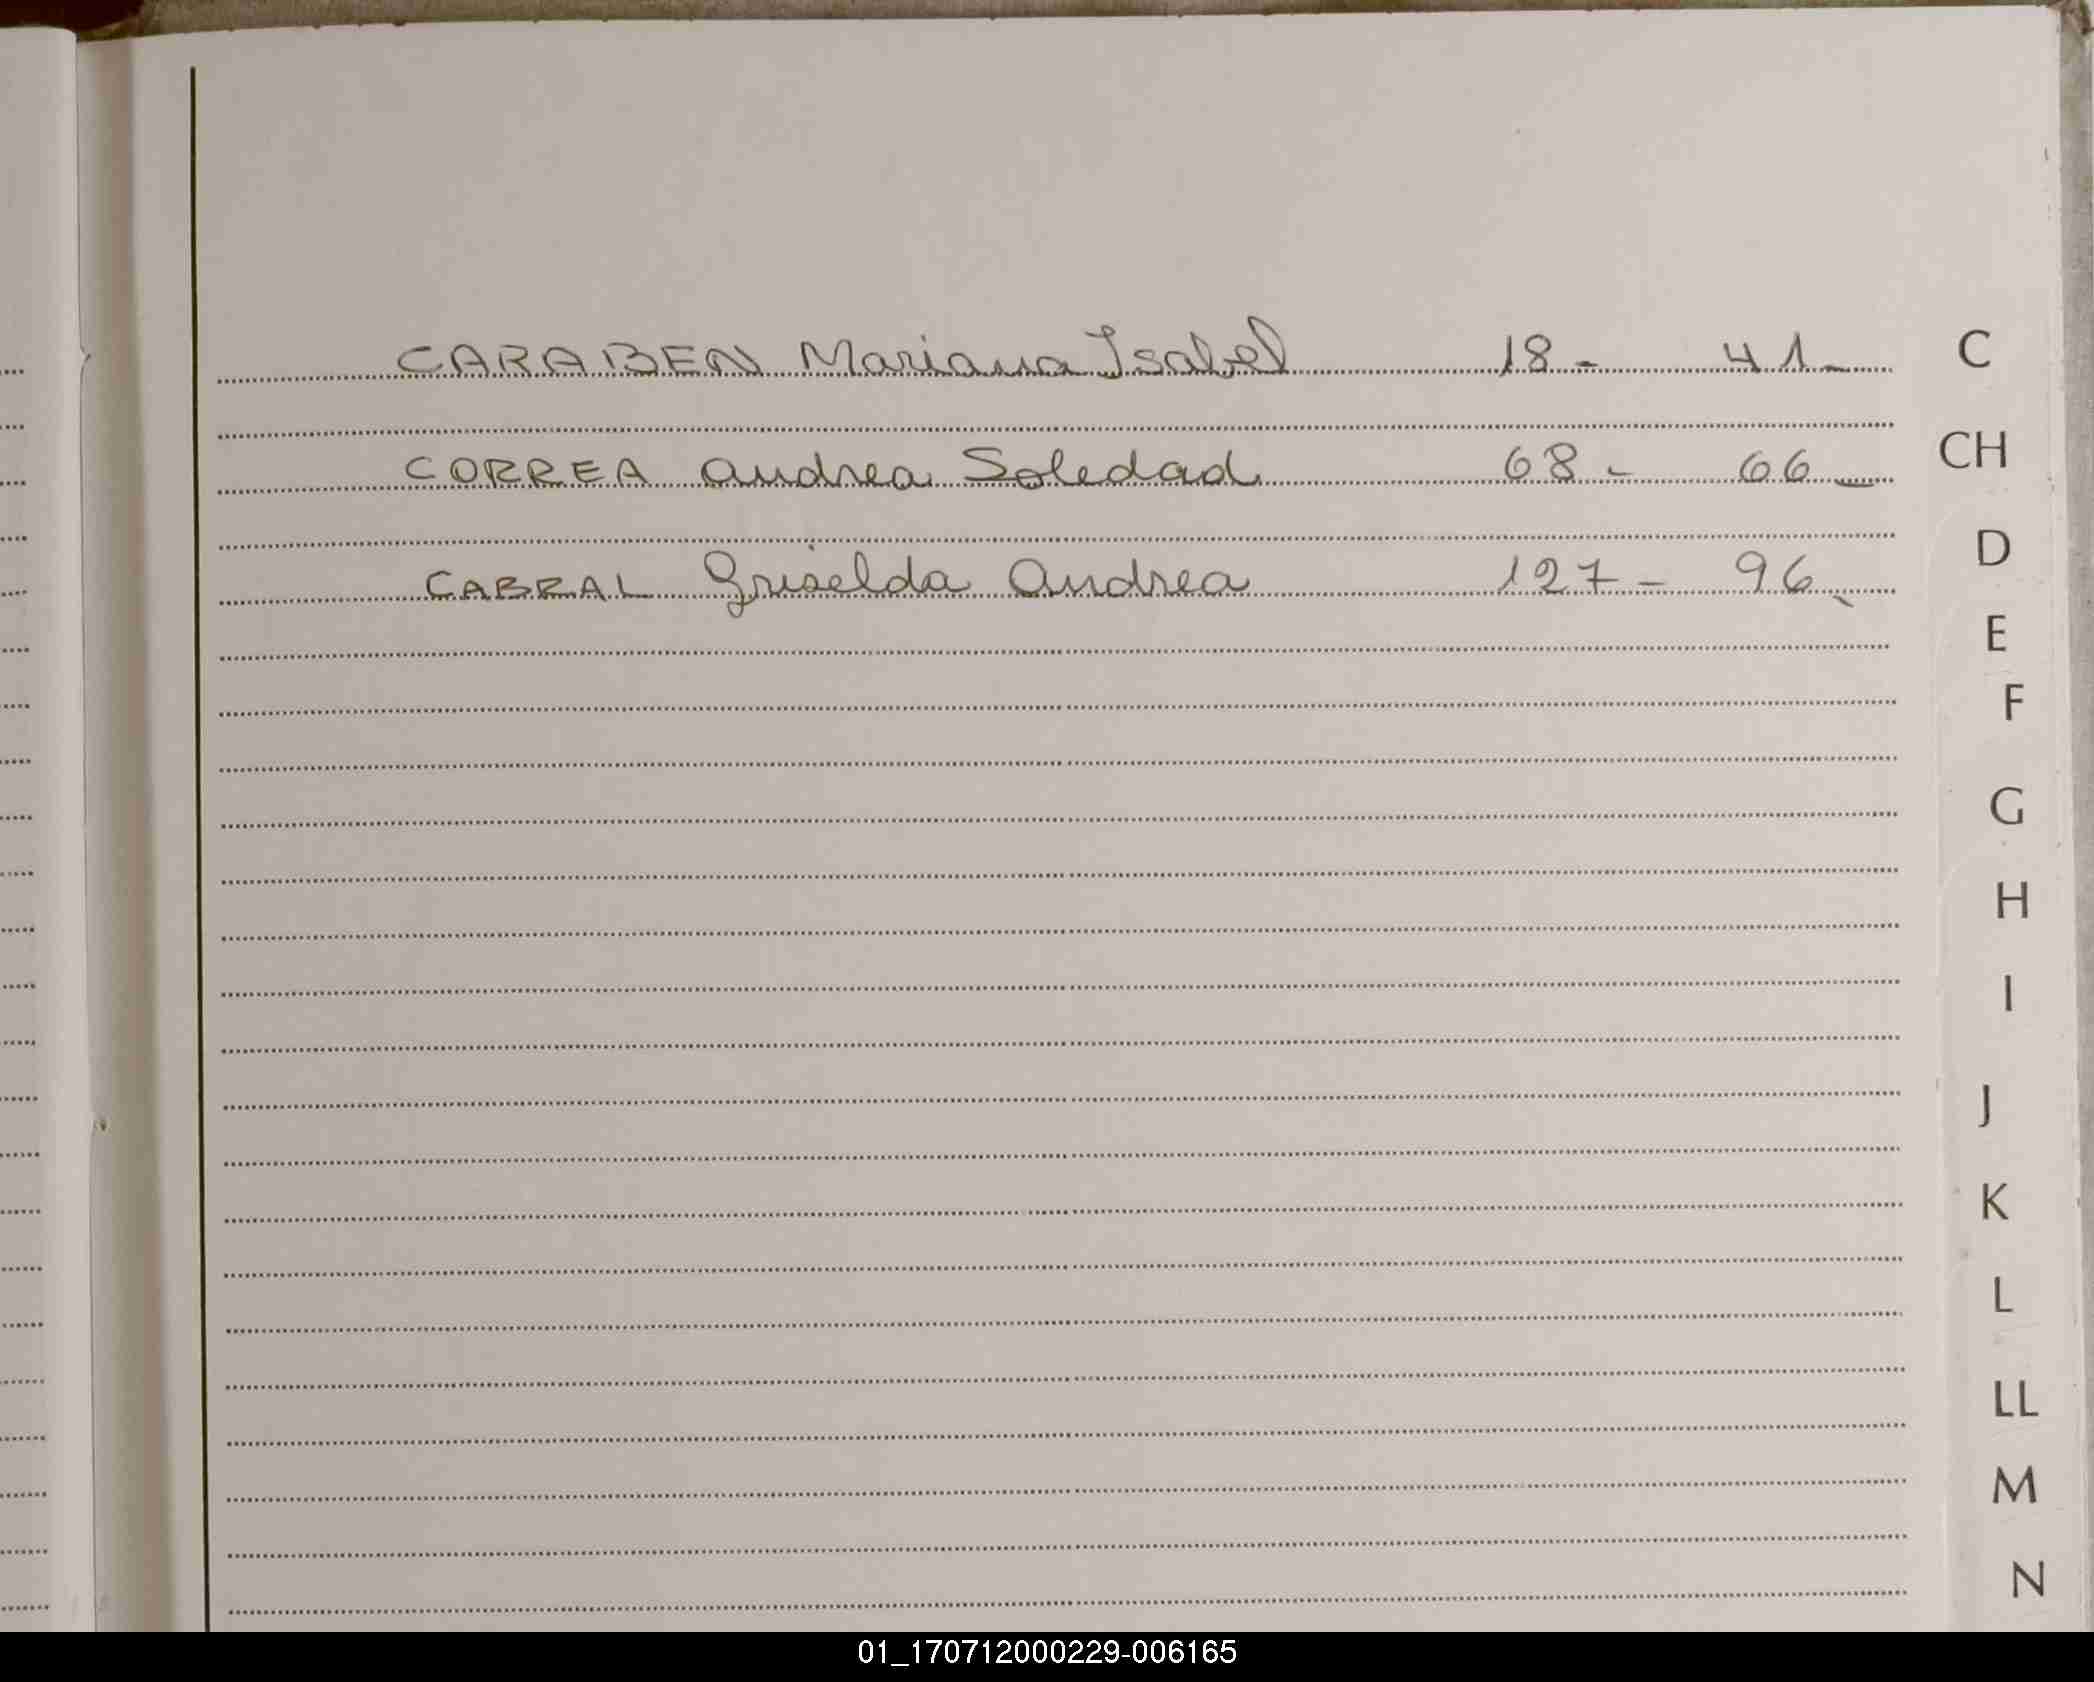 CARABEN Mariana Isabel 18- 41-
CORREA Andrea Soledad 68- 66-
CABRAL Griselda Andrea 127- 96-
C
CH
D
E
F
G
H
I
J
K
L
LL
M
N
01_170712000229-006165